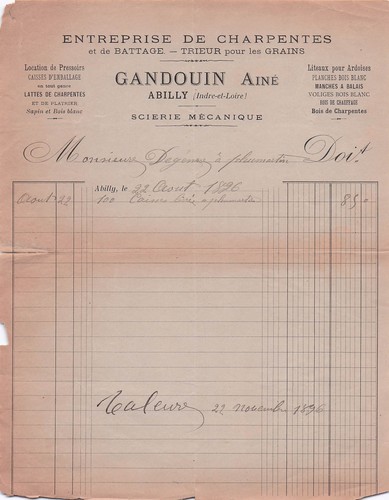 ENTREPRISE DE CHARPENTES
et de BATTAGE. — TRIEUR pour les GRAINS
Location de Pressoirs
CAISSES D'EMBALLAGE
en tout genre
LATTES DE CHARPENTES
ET DE PLATRIER
Sapin et Bois blanc
GANDOUIN AINÉ
ABILLY (Indre-et-Loire)
SCIERIE MÉCANIQUE
Liteaux pour Ardoises
PLANCHES BOIS BLANC
MANCHES A BALAIS
VOLIGES BOIS BLANC
BOIS DE CHAUFFAGE
Bois de Charpentes
Monsieur à Doit
Abilly, le 22 Aout 1896
Aout 22 100 Caisses 85 0
Valeur 22 novembre 1896